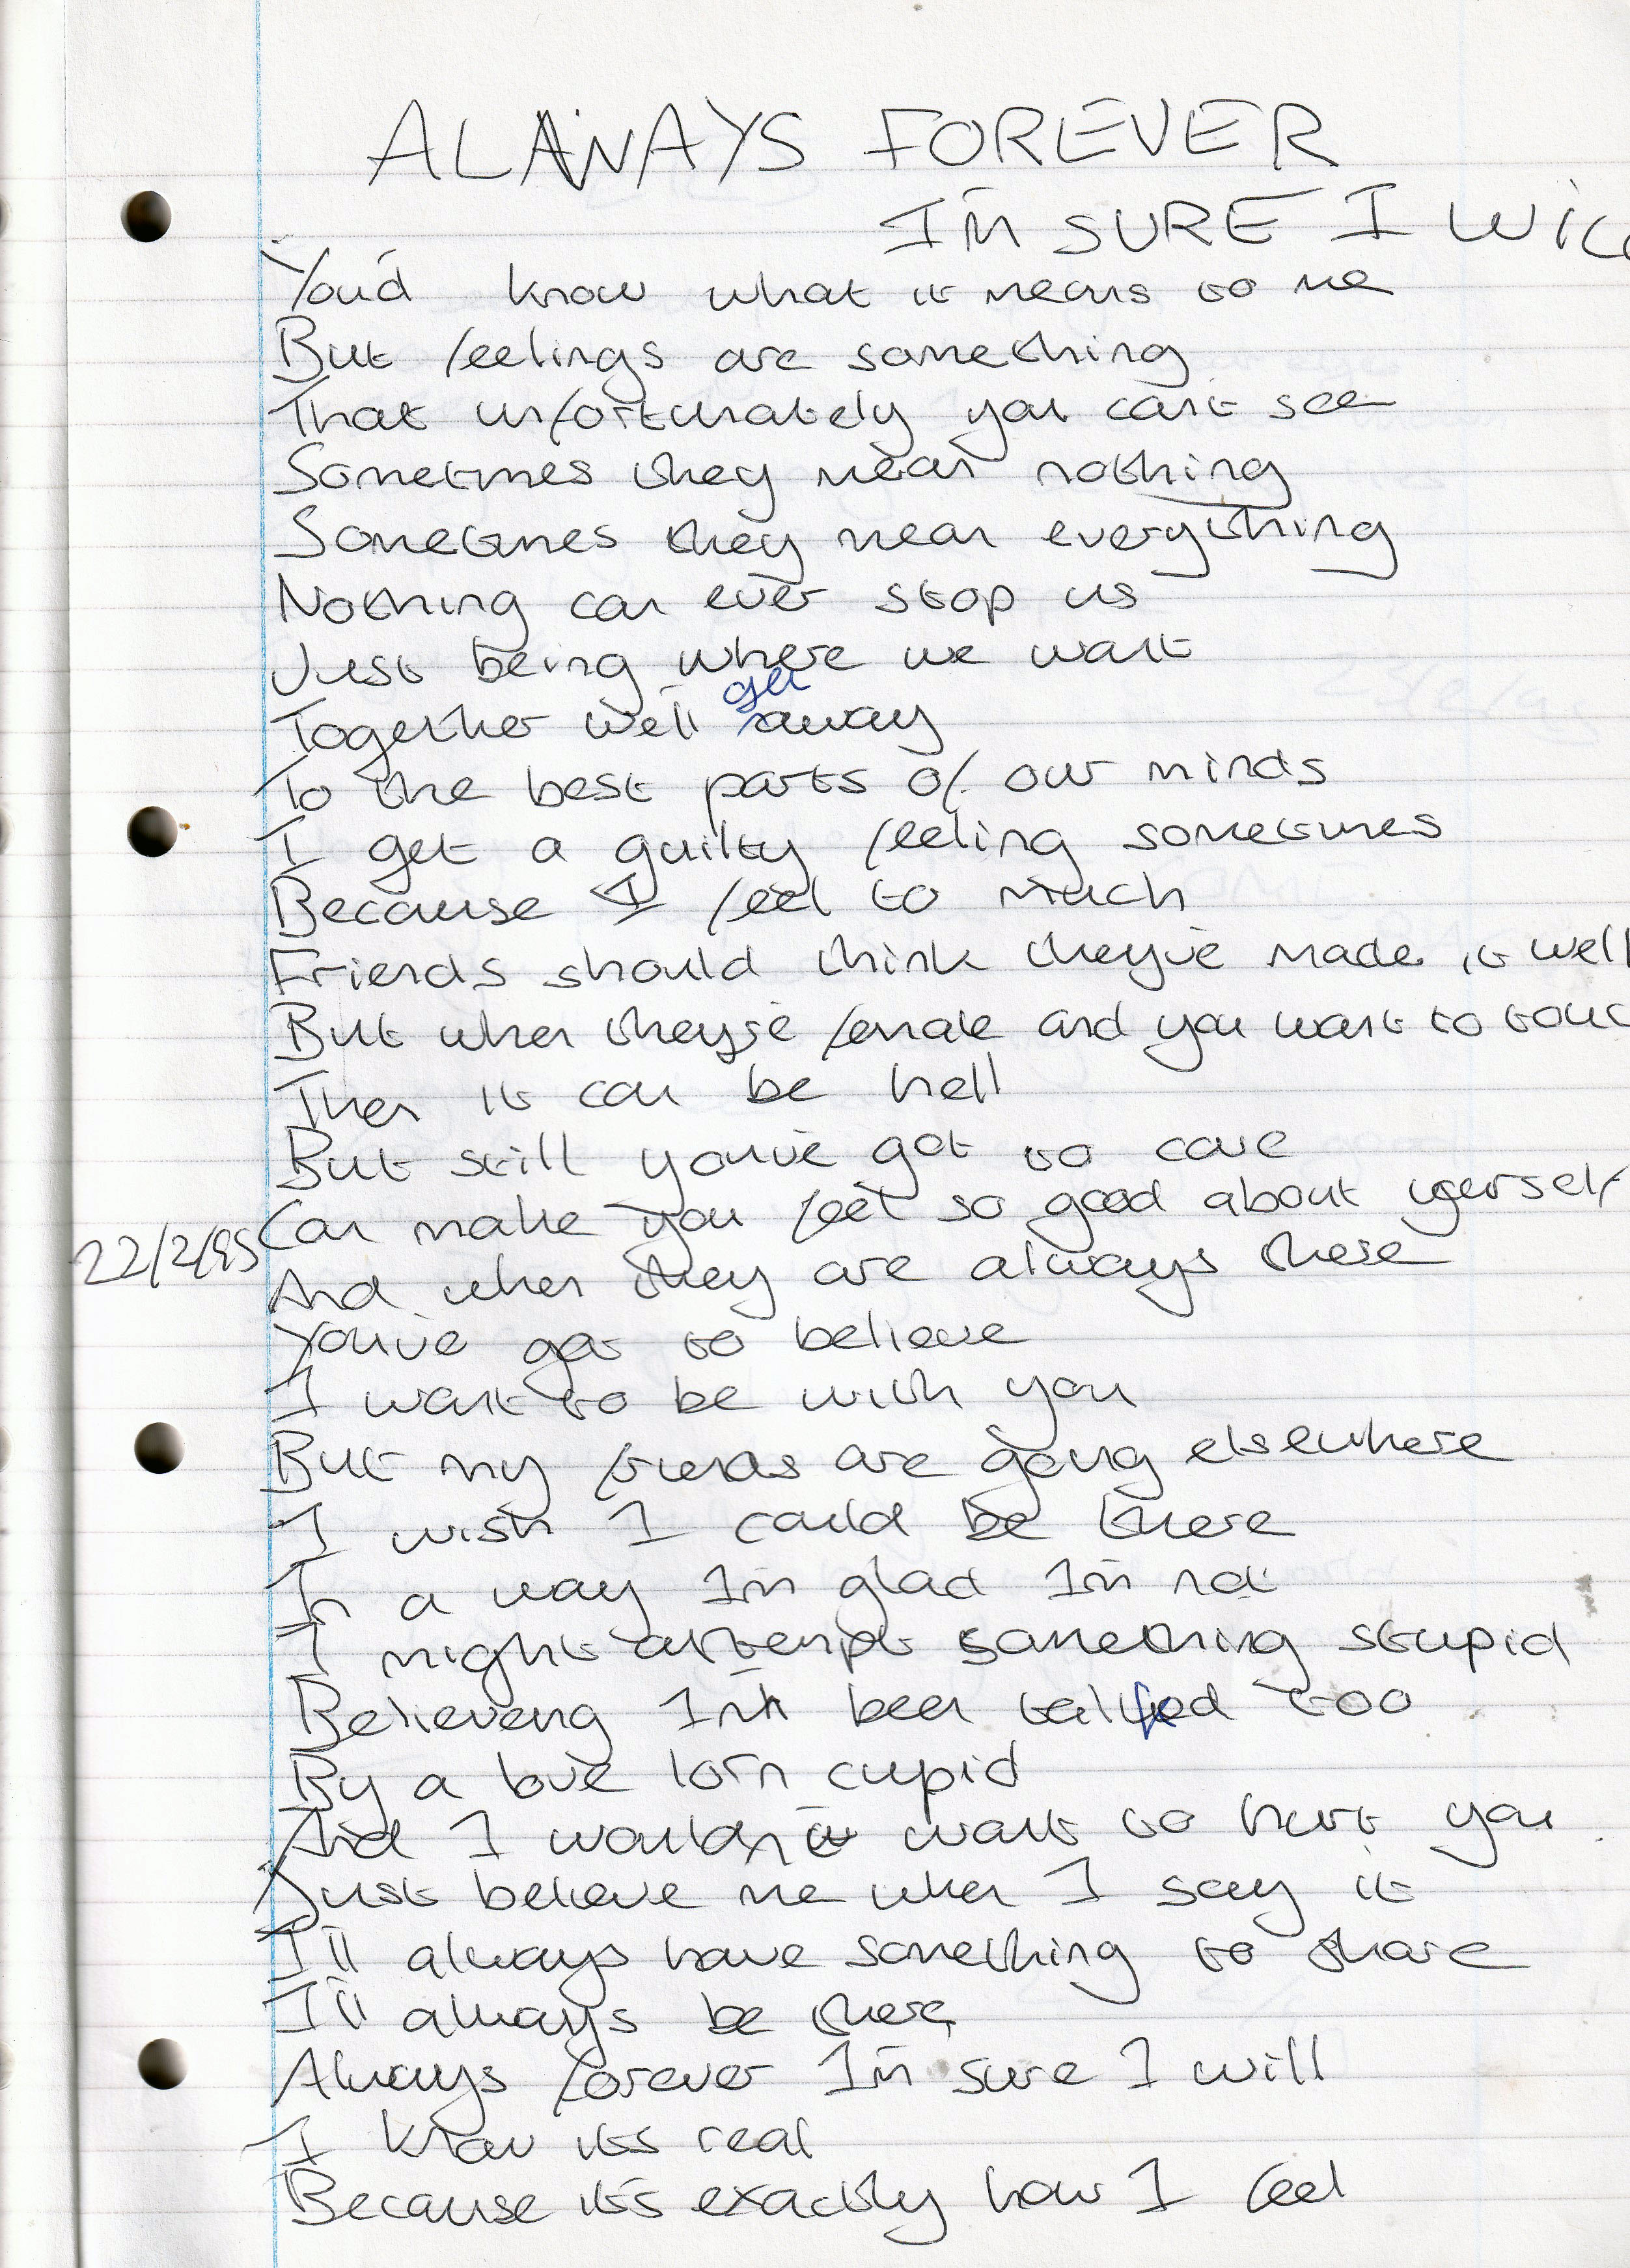 ALWAYS FOREVER
I'M SURE I WILL
You'd know what it means to me
But feelings are something
That unfortunately you can't see
Sometimes they mean nothing
Sometimes they mean everything
Nothing can ever stop us
Just being where we want
Together we'll get away
To the best parts of our minds
I get a guilty feeling sometimes
Because I feel to much
Friends should think they've made it well
But when they're female and you want to touc
Then it can be hell
But still you've got to care
Can make you feel so good about yerself
22/2/95
And when they are always there
You've got to believe
I want to be with you
But my friends are going elsewhere
I wish I could be there
In a way I'm glad I'm not
I might attempt something stupid
Believeng I'd been talked too
By a love lorn cupid
And I wouldn't want to hurt you
Just believe me when I say it
I'll always have something to share
I'll always be there
Always forever I'm sure I will
I know it's real
Because it's exactly how I feel